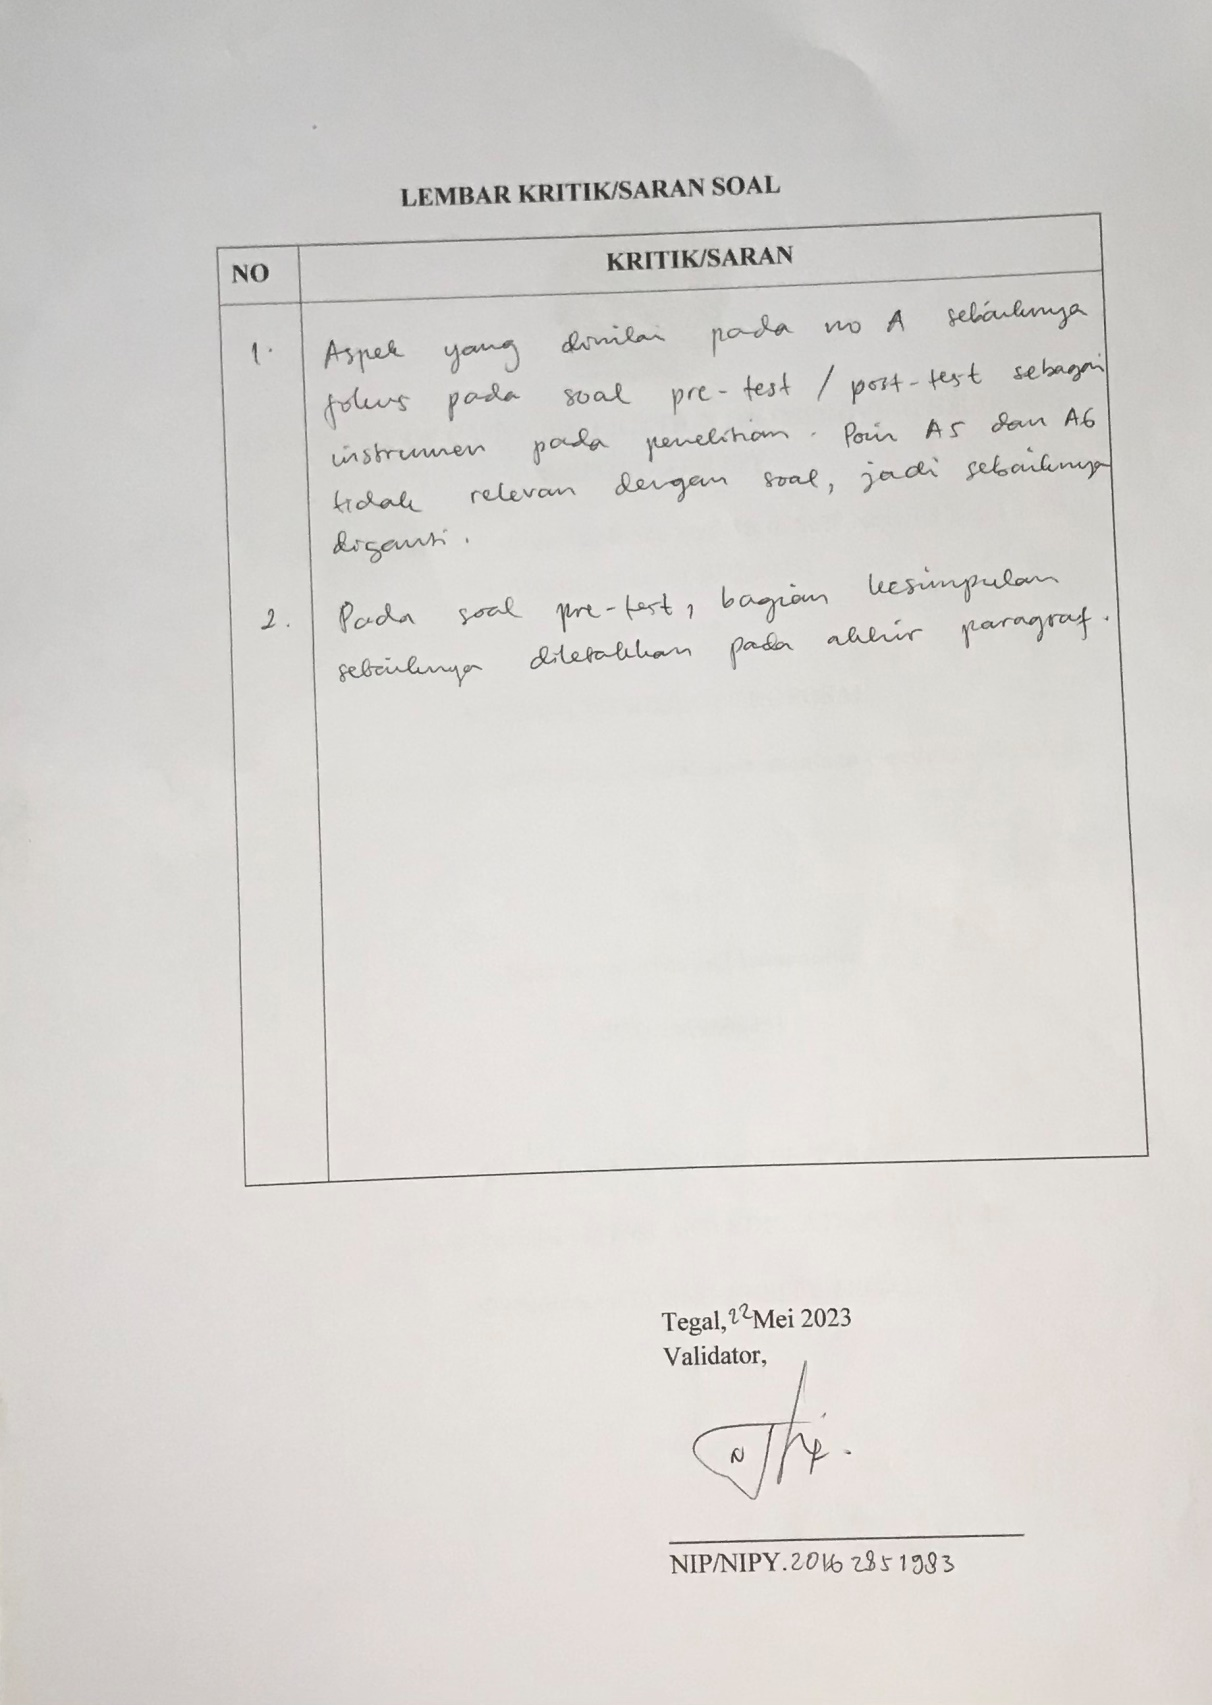 LEMBAR KRITIK/SARAN SOAL
NO KRITIK/SARAN
1. Aspek yang dinilai pada no A sebaiknya
fokus pada soal pre-test / post-test sebagai
instrumen pada penelitian. Poin A5 dan A6
tidak relevan dengan soal, jadi sebaiknya
diganti.
2. Pada soal pre-test, bagian kesimpulan
sebaiknya diletakkan pada akhir paragraf.
Tegal, 22 Mei 2023
Validator,
NIP/NIPY.